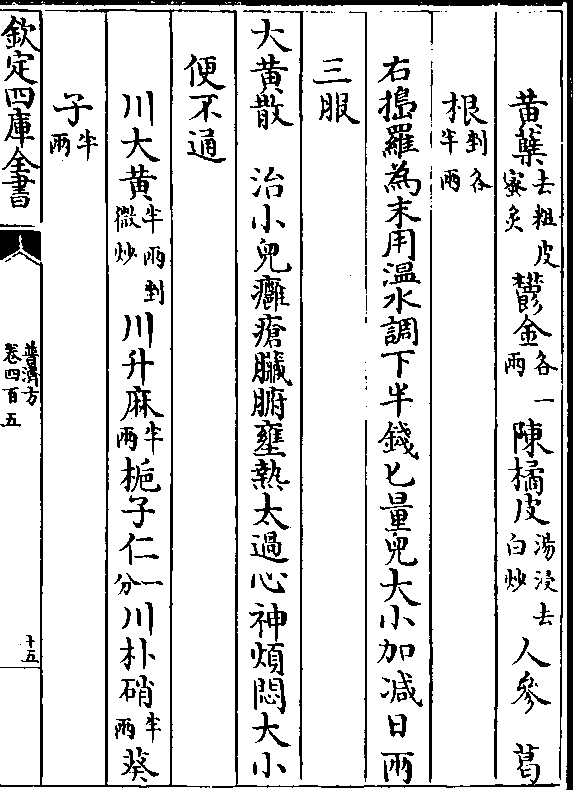 黄蘗去粗皮蜜炙 鬱金各一兩 陳橘皮湯浸去白炒 人參 葛
根剉各半兩
右搗羅為末用溫水調下半錢匕量兒大小加减日兩
三服
大黄散 治小兒癰瘡臟腑壅熱太過心神煩悶大小
便不通
川大黄半兩剉微炒 川升麻半兩 梔子仁一分 川朴硝半兩 葵
子半兩
欽定四庫全書
普濟方
卷四百五
十五